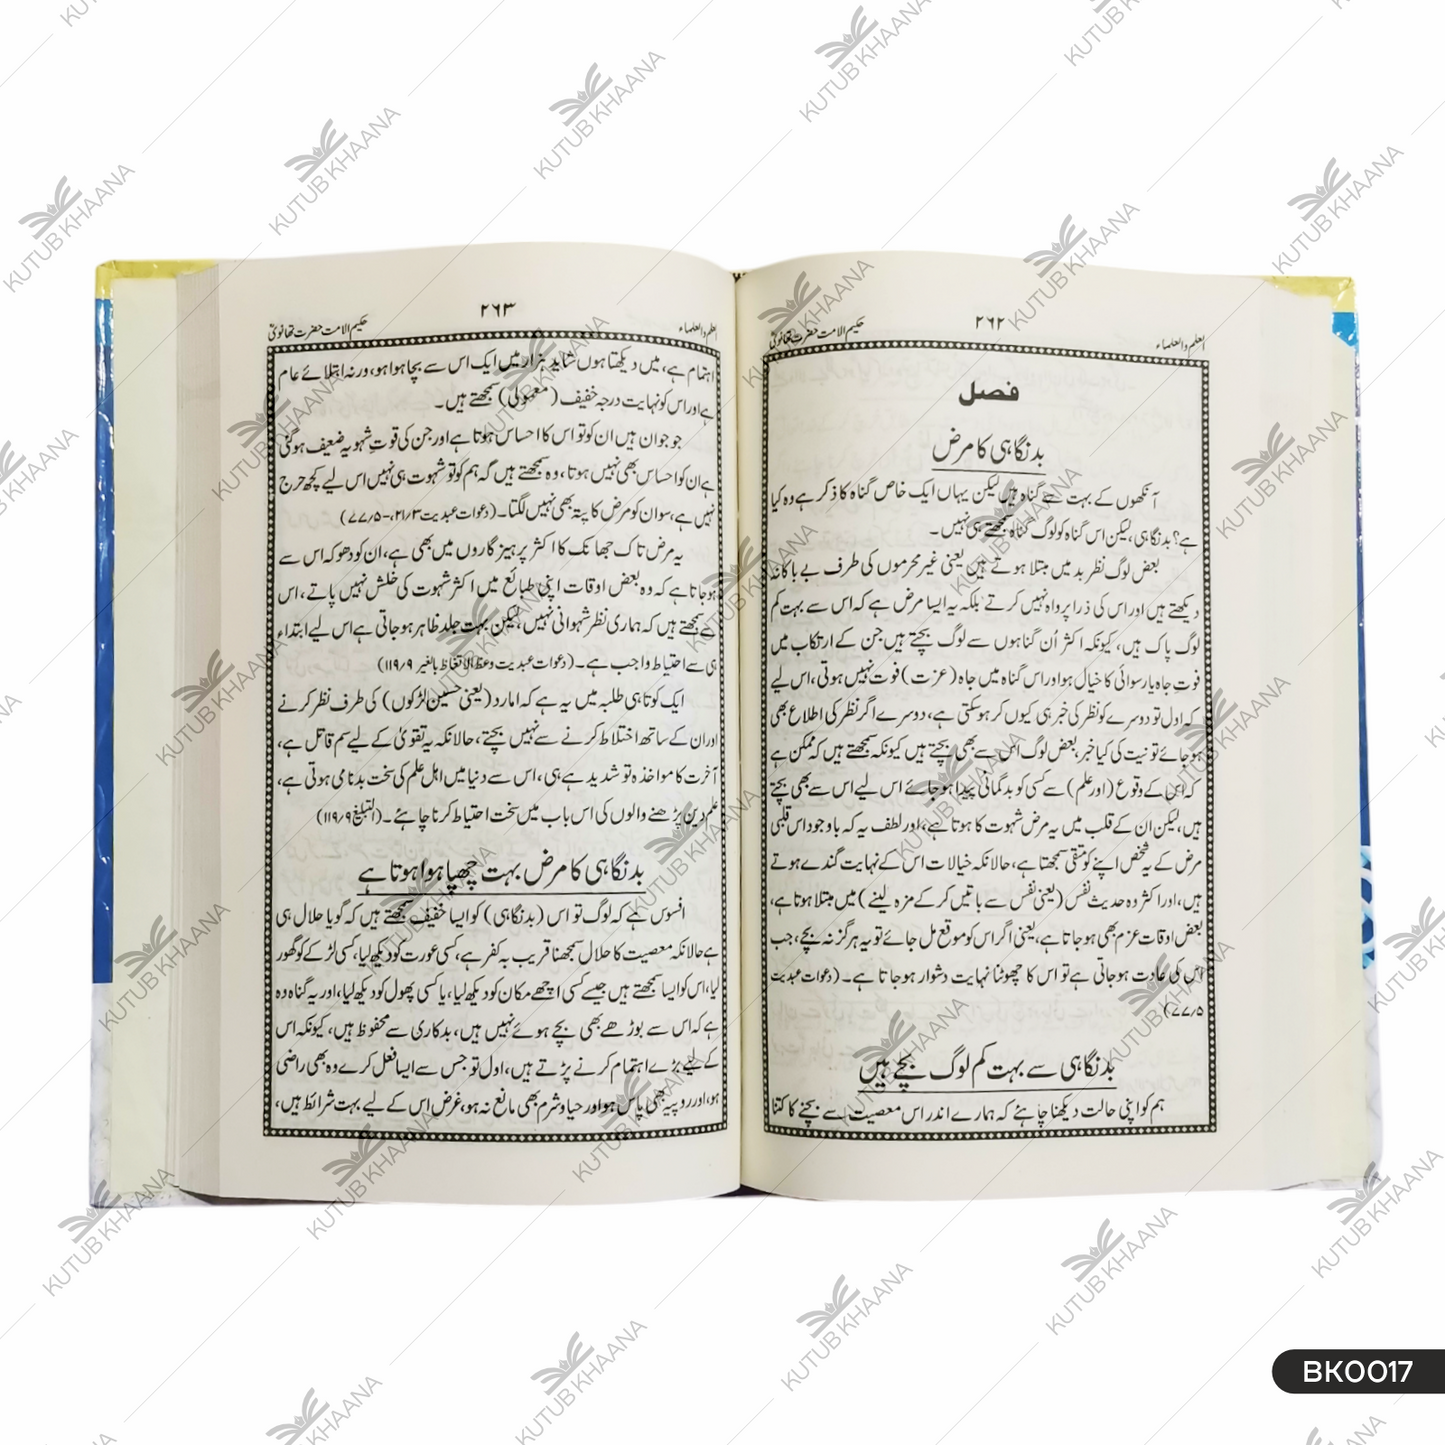 العلم والعلماء
۲۶۲
حکیم الامت حضرت تھانویؒ
فصل
بدنگاہی کا مرض
آنکھوں کے بہت سے گناہ ہیں لیکن یہاں ایک خاص گناہ کا ذکر ہے وہ کیا
ہے؟ بدنگاہی، لیکن اس گناہ کو لوگ گناہ سمجھتے ہی نہیں۔
بعض لوگ نظر بد میں مبتلا ہوتے ہیں یعنی غیر محرموں کی طرف بے باکانہ
دیکھتے ہیں اور اس کی ذرا پرواہ نہیں کرتے بلکہ یہ ایسا مرض ہے کہ اس سے بہت کم
لوگ پاک ہیں، کیونکہ اکثر اُن گناہوں سے لوگ بچتے ہیں جن کے ارتکاب میں
فوت جاہ یا رسوائی کا خیال ہو اور اس گناہ میں جاہ (عزت) فوت نہیں ہوتی، اس لیے
کہ اول تو دوسرے کو نظر کی خبر ہی کیوں کر ہو سکتی ہے، دوسرے اگر نظر کی اطلاع بھی
ہو جائے تو نیت کی کیا خبر، بعض لوگ اس سے بھی بچتے ہیں کیونکہ سمجھتے ہیں کہ ممکن ہے
کہ اس کے وقوع (اور علم) سے کسی کو بدگمانی پیدا ہو جائے اس لیے اس سے بھی بچتے
ہیں، لیکن ان کے قلب میں یہ مرض شہوت کا ہوتا ہے، اور لطف یہ کہ باوجود اس قلبی
مرض کے یہ شخص اپنے کو متقی سمجھتا ہے، حالانکہ خیالات اس کے نہایت گندے ہوتے
ہیں، اور اکثر وہ حدیث نفس (یعنی نفس سے باتیں کر کے مزہ لینے) میں مبتلا ہوتا ہے،
بعض اوقات عزم بھی ہو جاتا ہے، یعنی اگر اس کو موقع مل جائے تو یہ ہرگز نہ بچے، جب
اس کی عادت ہو جاتی ہے تو اس کا چھوٹنا نہایت دشوار ہو جاتا ہے۔ (دعوات عبدیت
۷۷/۵)
بدنگاہی سے بہت کم لوگ بچے ہیں
ہم کو اپنی حالت دیکھنا چاہئے کہ ہمارے اندر اس معصیت سے بچنے کا کتنا
العلم والعلماء
۲۶۳
حکیم الامت حضرت تھانویؒ
اہتمام ہے، میں دیکھتا ہوں شاید ہزار میں ایک اس سے بچا ہوا ہو، ورنہ ابتلائے عام
ہے اور اس کو نہایت درجہ خفیف (معمولی) سمجھتے ہیں۔
جو جوان ہیں ان کو تو اس کا احساس ہوتا ہے اور جن کی قوتِ شہویہ ضعیف ہو گئی
ہے ان کو احساس بھی نہیں ہوتا، وہ سمجھتے ہیں کہ ہم کو تو شہوت ہی نہیں اس لیے کچھ حرج
نہیں ہے، سو ان کو مرض کا پتہ بھی نہیں لگتا۔ (دعوات عبدیت ۲۱/۳،-۷۷/۵)
یہ مرض تاک جھانک کا اکثر پرہیزگاروں میں بھی ہے، ان کو دھوکہ اس سے
ہو جاتا ہے کہ وہ بعض اوقات اپنی طبائع میں اکثر شہوت کی خلش نہیں پاتے، اس
سے سمجھتے ہیں کہ ہماری نظر شہوانی نہیں، لیکن بہت جلد ظاہر ہو جاتی ہے اس لیے ابتداء
ہی سے احتیاط واجب ہے۔ (دعوات عبدیت وعظ الاتعاظ بالغیر ۱۱۹/۹)
ایک کوتاہی طلبہ میں یہ ہے کہ امارد (یعنی حسین لڑکوں) کی طرف نظر کرنے
اور ان کے ساتھ اختلاط کرنے سے نہیں بچتے، حالانکہ یہ تقویٰ کے لیے سم قاتل ہے،
آخرت کا مواخذہ تو شدید ہے ہی، اس سے دنیا میں اہل علم کی سخت بدنامی ہوتی ہے،
علم دین پڑھنے والوں کی اس باب میں سخت احتیاط کرنا چاہئے۔ (التبلیغ ۱۱۹/۹)
بدنگاہی کا مرض بہت چھپا ہوا ہوتا ہے
افسوس ہے کہ لوگ تو اس (بدنگاہی) کو ایسا خفیف سمجھتے ہیں کہ گویا حلال ہی
ہے حالانکہ معصیت کا حلال سمجھنا قریب بہ کفر ہے، کسی عورت کو دیکھ لیا، کسی لڑکے کو گھور
لیا، اس کو ایسا سمجھتے ہیں جیسے کسی اچھے مکان کو دیکھ لیا، یا کسی پھول کو دیکھ لیا، اور یہ گناہ وہ
ہے کہ اس سے بوڑھے بھی بچے ہوئے نہیں ہیں، بدکاری سے محفوظ ہیں، کیونکہ اس
کے لیے بڑے اہتمام کرنے پڑتے ہیں، اول تو جس سے ایسا فعل کرے وہ بھی راضی
ہو، اور روپیہ بھی پاس ہو اور حیا و شرم بھی مانع نہ ہو، غرض اس کے لیے بہت شرائط ہیں،
KUTUB KHAANA
BK0017